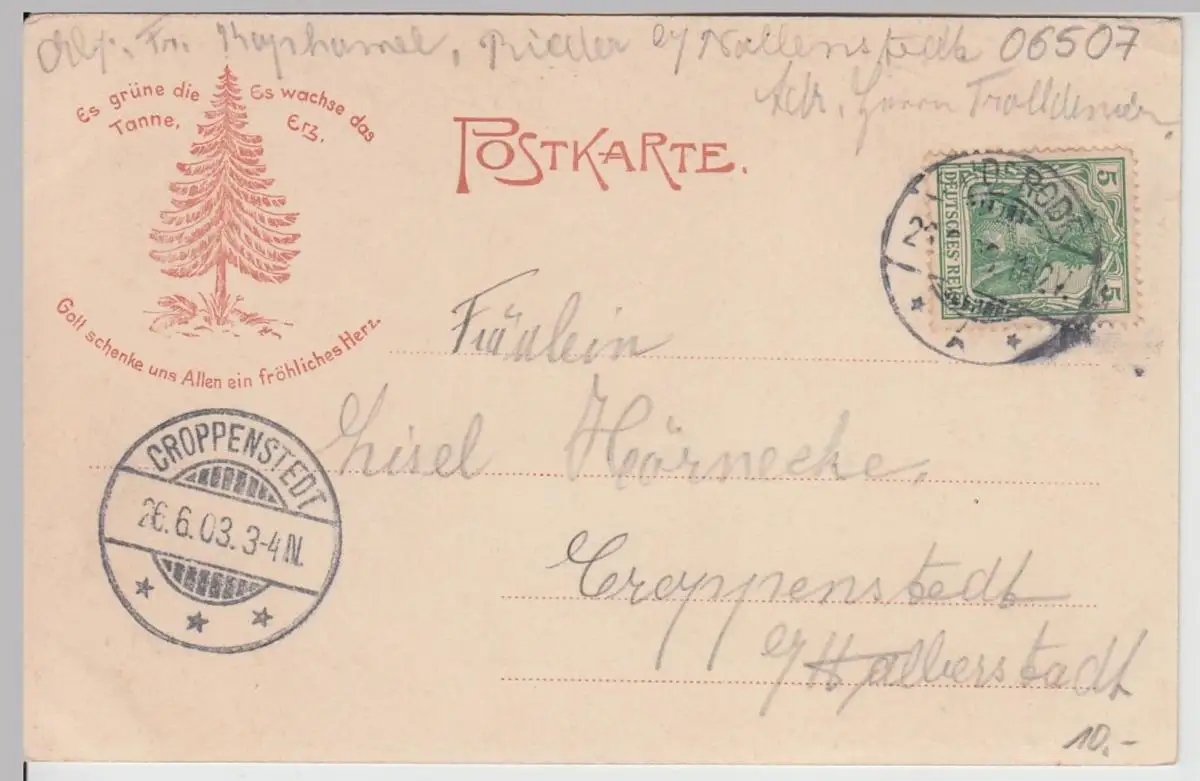 Rieder b/ Ballenstedt 06507
Adr. Herrn
Es grüne die Tanne,
Es wachse das Erz.
Gott schenke uns Allen ein fröhliches Herz.
POSTKARTE.
5 DEUTSCHES REICH 5
Fräulein
Lisel Hörnecke,
Croppenstedt
b/Halberstadt
CROPPENSTEDT
26.6.03. 3-4 N.
10.-